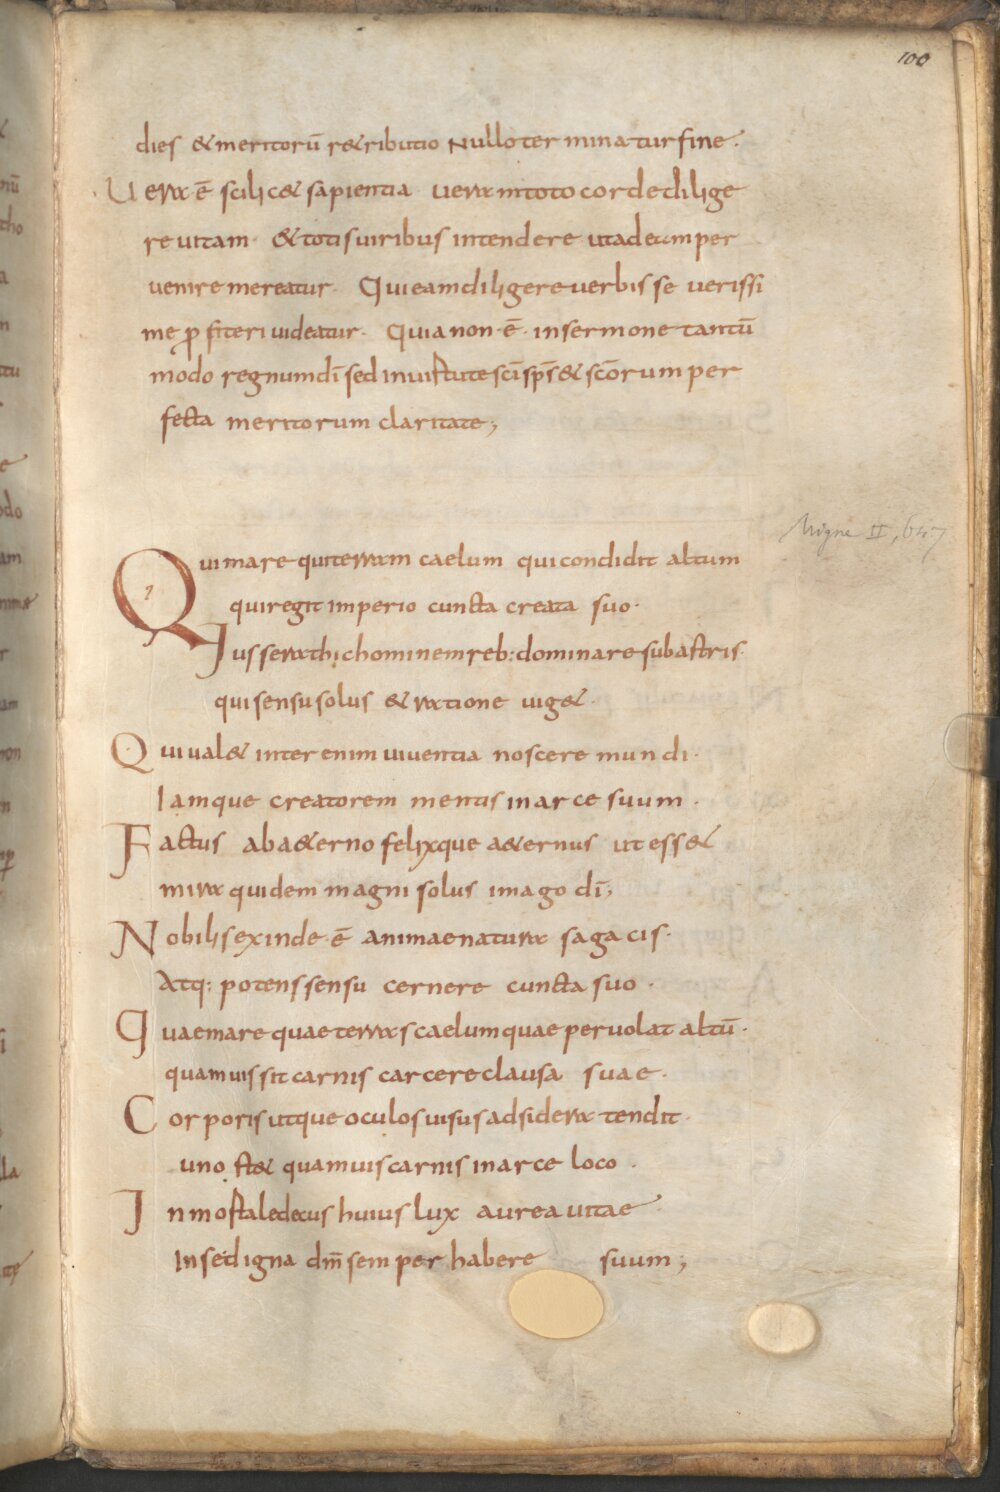 100
dies & meritorū r&ributio Nullo terminatur fine.
Uera ē scilic& sapientia uera in toto corde dilige
re uitam. & totis uiribus intendere ut ad eam per
uenire mereatur. Qui eam diligere uerbis se uerissi
me pfiteri uideatur. Quia non ē. in sermone tantū
modo regnum dī sed in uirtute sci sps & scōrum per
fecta meritorum claritate;
Migne II, 647
Qui mare qui terram caelum qui condidit altum
qui regit imperio cuncta creata suo.
Iusserat hic hominem reb: dominare sub astris.
qui sensu solus & ratione uig&.
Qui ual& inter enim uiuentia noscere mundi.
Iamque creatorem mentis in arce suum.
Factus ab a&erno felixque a&ernus ut ess&
mira quidem magni solus imago dī;
Nobilis exinde. ē animae natura sagacis.
Atq: potens sensu cernere cuncta suo.
Quae mare quae terras caelum quae peruolat altū.
quamuis sit carnis carcere clausa suae.
Corporis utque oculos uisus ad sidera tendit.
uno st& quamuis carnis in arce loco.
Inmortale decus huius lux aurea uitae.
In se digna dm̄ semper habere suum;